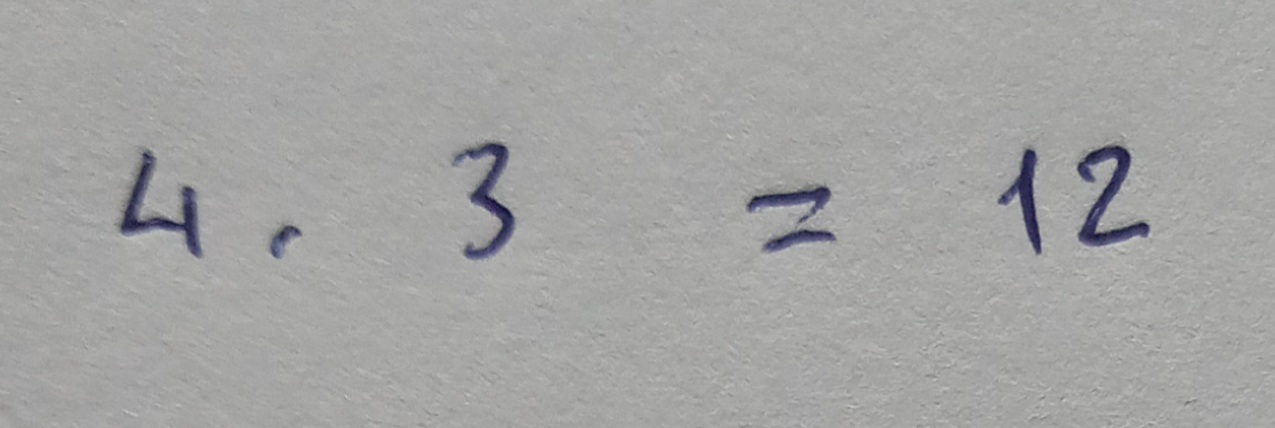 4. 3 = 12